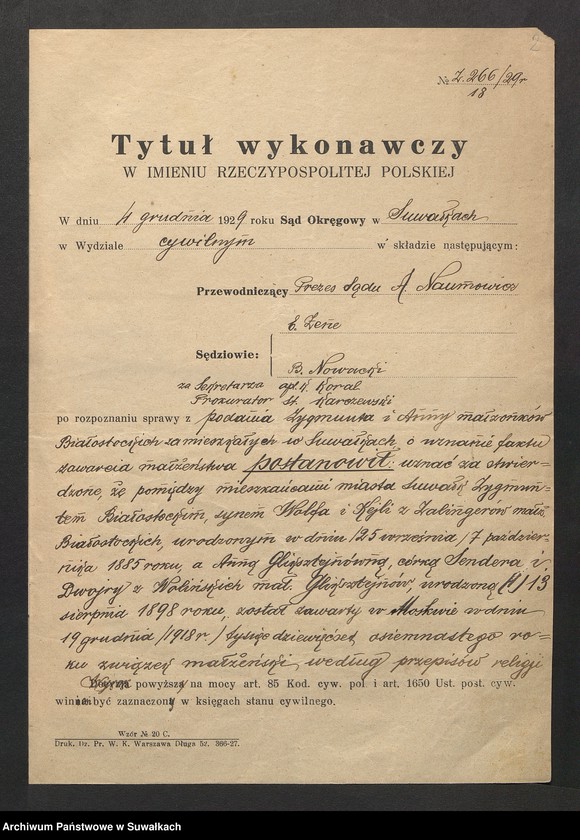 2
№ Z. 266/29r
18
Tytuł wykonawczy
W IMIENIU RZECZYPOSPOLITEJ POLSKIEJ
W dniu 4 grudnia 1929 roku Sąd Okręgowy w Suwałkach
w Wydziale cywilnym w składzie następującym:
Przewodniczący Prezes Sądu A. Naumowicz
E. Zene
Sędziowie:
B. Nowacki
za Sekretarza apl. K. Koral
Prokurator St. Karczewski
po rozpoznaniu sprawy z podania Zygmunta i Anny małżonków
Białostockich zamieszkałych w Suwałkach o uznanie faktu
zawarcia małżeństwa postanowił: uznać za stwier-
dzone, że pomiędzy mieszkańcami miasta Suwałk Zygmun-
tem Białostockim, synem Wolfa i Hejli z Zalingerów małż.
Białostockich, urodzonym w dniu /25 września/ 7 paździer-
nika 1885 roku, a Anną Gliksztejnówną, córką Sendera i
Dwojry z Wolińskich mał. Gliksztejnów urodzoną (1) 13
sierpnia 1898 roku, został zawarty w Moskwie w dniu
19 grudnia /1918 r./ tysiąc dziewięćset osiemnastego ro-
ku związek małżeński, według przepisów religji
powyższy na mocy art. 85 Kod. cyw. pol i art. 1650 Ust. post. cyw.
winien być zaznaczony w księgach stanu cywilnego.
Wzór № 20 C.
Druk. Dz. Pr. W. K. Warszawa Długa 52. 366-27.
Archiwum Państwowe w Suwałkach